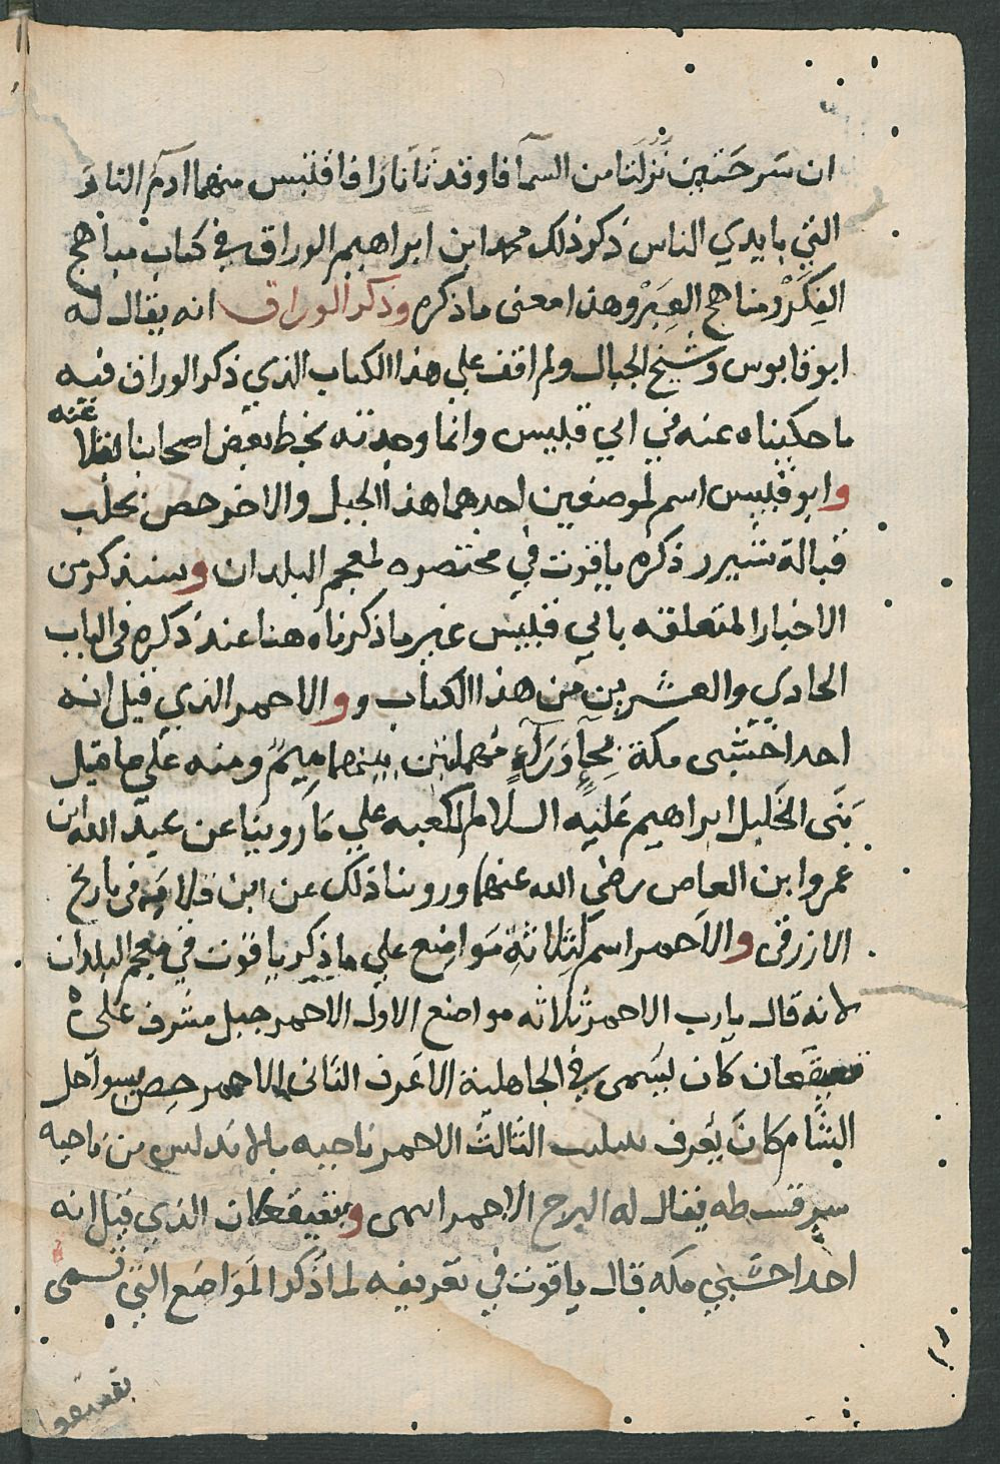 ان سرحتين نزلتا من السمآ فاوقدتا نارا فاقتبس منهما ادم النار
التي بايدي الناس ذكر ذلك محمد ابن ابراهيم الوراق في كتاب مباهج
الفِكَرْ ومناهج العِبَرْ وهذا معنى ما ذكره وذكر الوراق انه يقال له
ابو قابوس وشيخ الجبال ولم اقف علي هذا الكتاب الذي ذكر الوراق فيه
ما حكيناه عنه في ابي قبيس وانما وجدته بخط بعض اصحابنا نقلا عنه
وابو قبيس اسم لموضعين احدهما هذا الجبل والاخر حصن بحلب
قبالة شيرر ذكره ياقوت في مختصره لمعجم البلدان وسنذكر من
الاخبار المتعلقه بابي قبيس غير ما ذكرناه هنا عند ذكره في الباب
الحادي والعشرين من هذا الكتاب و والاحمر الذي قيل انه
احد اخشبى مكة بحآءٍ وَرَآءٍ مُهملتين بينهما مِيمٌ ومنه علي ما قيل
بَنَى الخَليل ابراهيم عَليه السلام الكعبه علي مَا روينا عن عبد الله ابن
عمرو ابن العاص رضي الله عنهما وروينا ذلك عن ابن قلابه في تاريخ
الازرقى والاَحمر اسم لِثلاثةِ مَواضِع علي ما ذكر ياقوت في معجم البلدان
لانه قال بارب الاحمر ثلاثه مواضع الاول الاحمر جبل مشرف علىٰ
قعيقعان كان يسَمى في الجاهلية الاعرف الثانى الاحمر حصن بسواحل
الشام كانَ يُعرف الثالث الاحمر ناحيه بالاندلس من ناحيه
سرقسطه يقال له البرج الاحمر اسمى وقعيقعان الذي قيل انه
احد اخشبي مكه قال ياقوت في تعريفه لما ذكر المَوَاضع التي تسمى
بقعيقعا